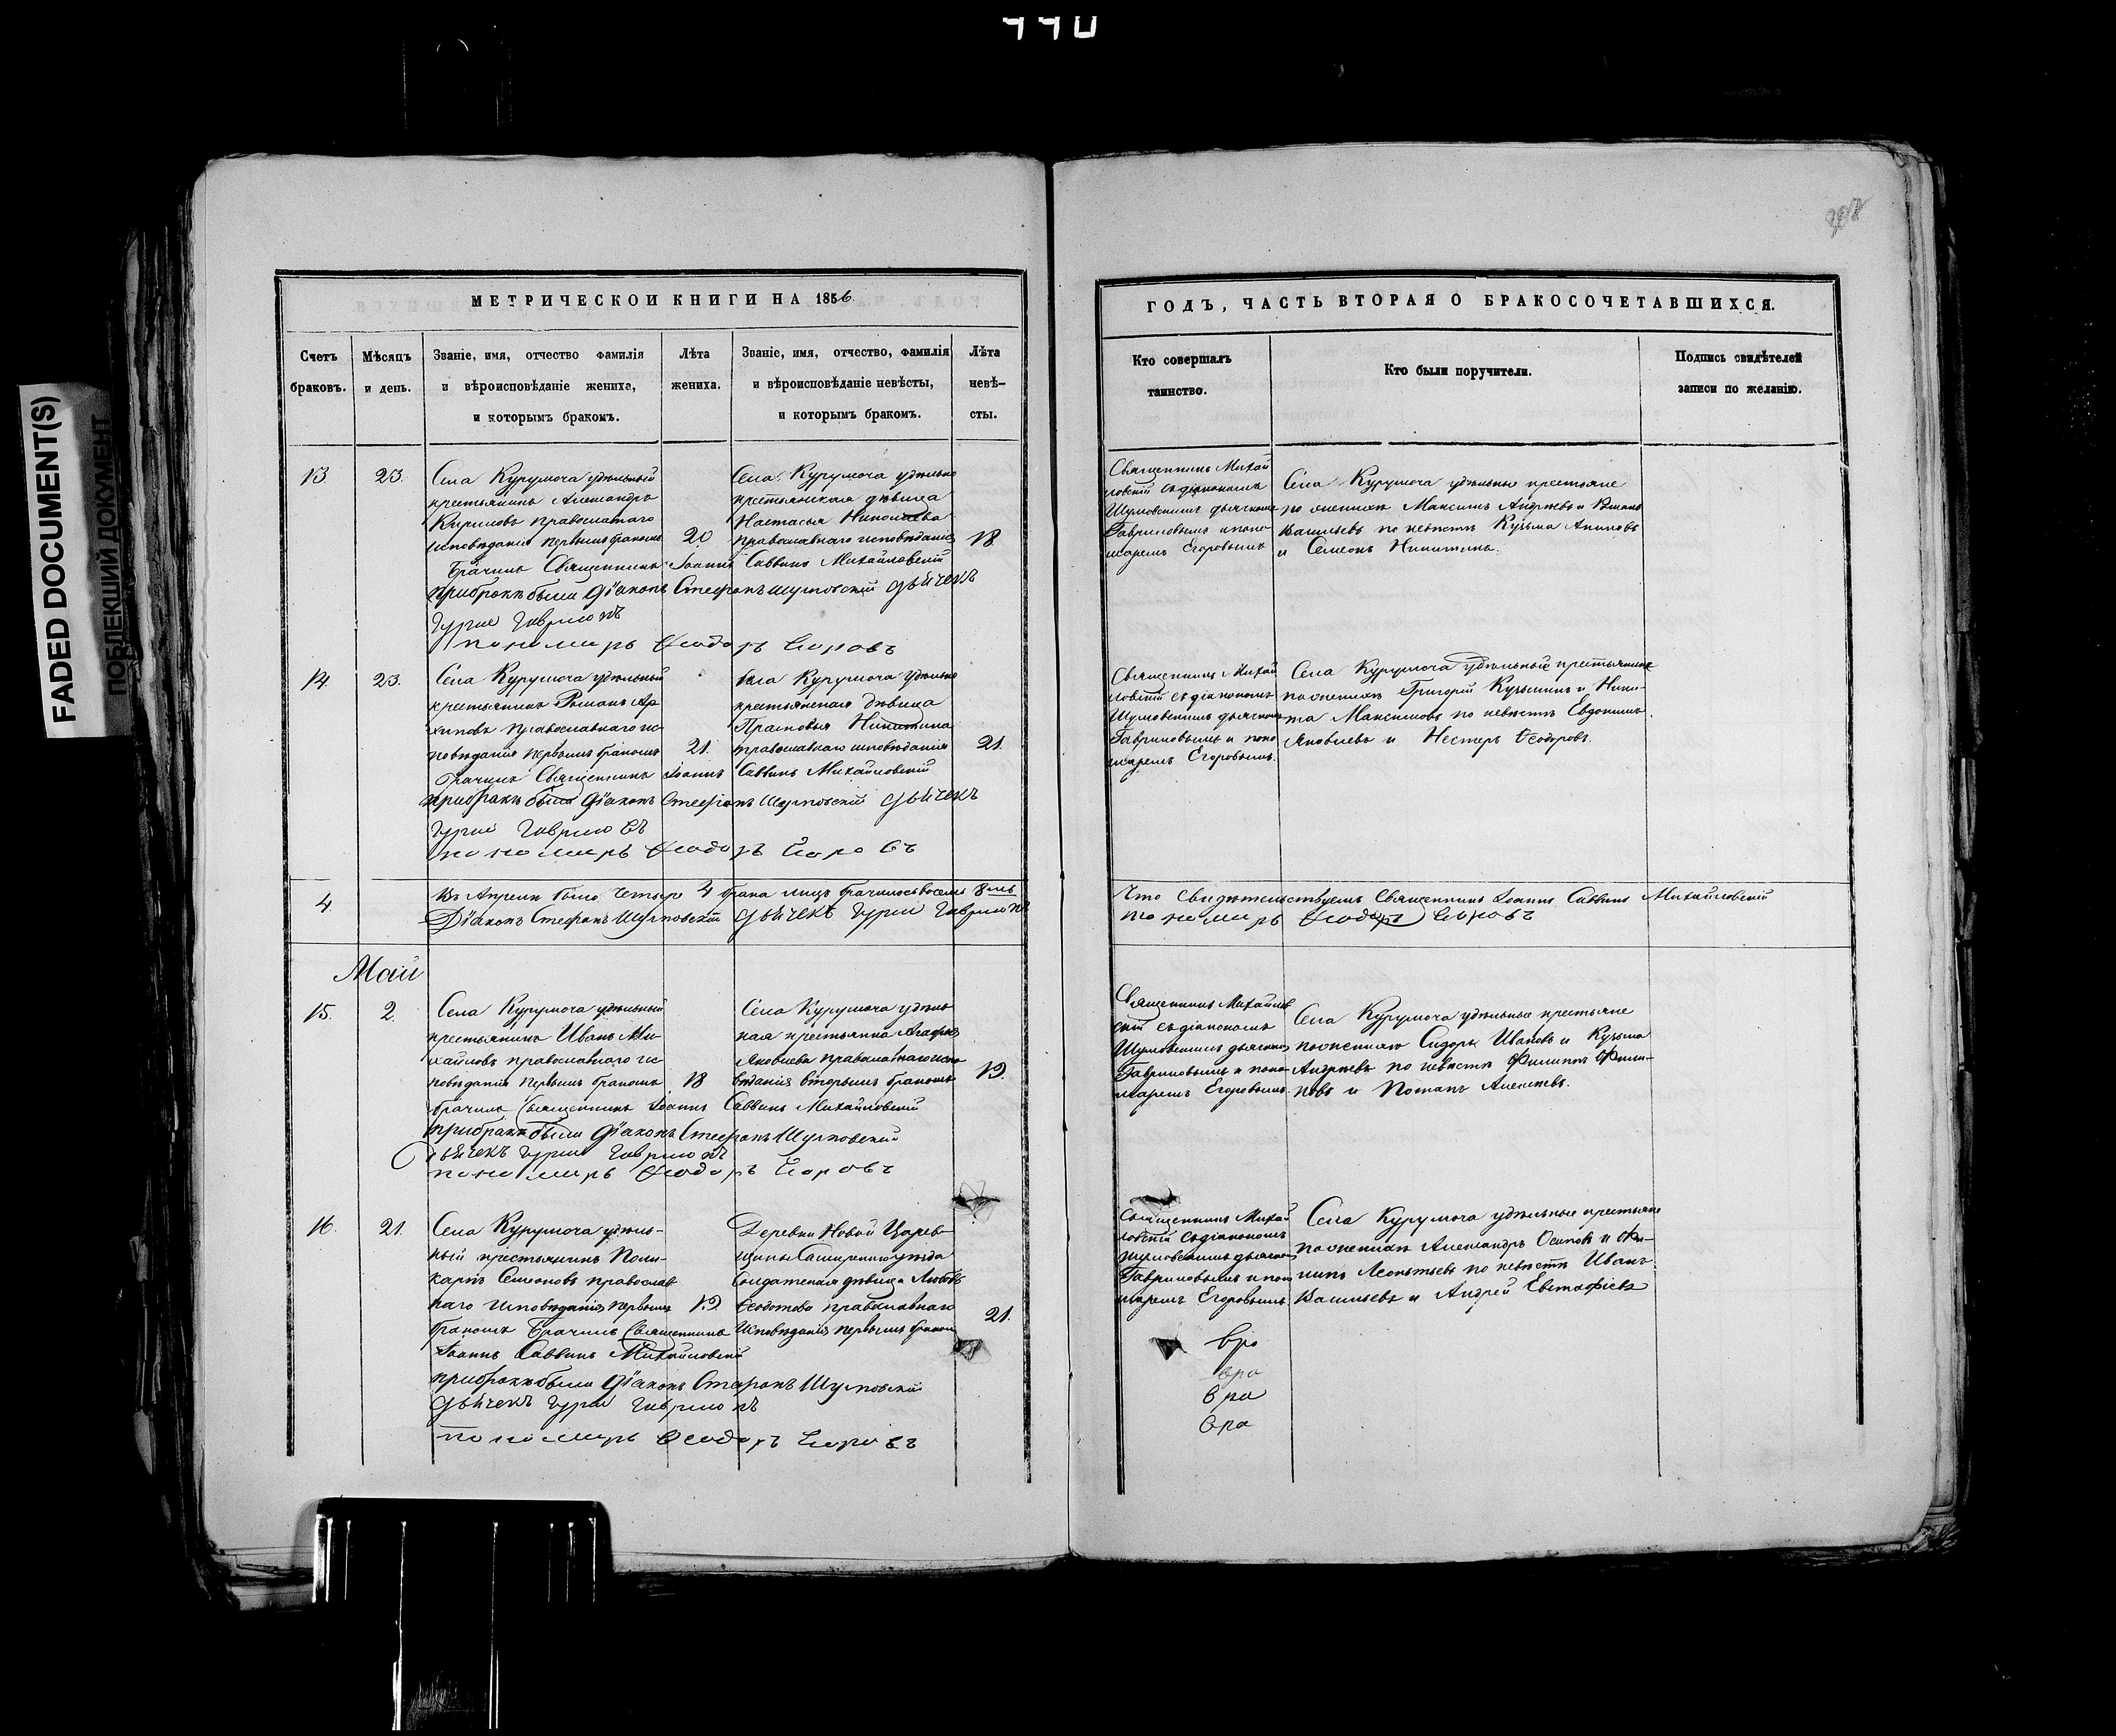 440
FADED DOCUMENT(S)
ПОБЛЕКШИЙ ДОКУМЕНТ
МЕТРИЧЕСКОЙ КНИГИ НА 1856.
Счетъ браковъ.
Мѣсяцъ и день.
Званіе, имя, отчество фамилія
и вѣроисповѣданіе жениха,
и которымъ бракомъ.
Лѣта
жениха.
Званіе, имя, отчество, фамилія
и вѣроисповѣданіе невѣсты,
и которымъ бракомъ.
Лѣта
невѣ-
сты.
13. 23.
Села Курумоча удѣльный
крестьянинъ Александръ
Кириловъ православнаго
исповѣданія первымъ бракомъ
20
Села Курумоча удѣльно
крестьянская дѣвица
Настасья Николаева
православнаго исповѣданія
18
Брачилъ Священникъ Іоаннъ Саввинъ Михайловскій
прибракѣ были Діаконъ Стефанъ Шумовскій дьячекъ
Гурій Гавриловъ
пономарь Ѳеодоръ Егоровъ
14. 23.
Села Курумоча удѣльный
крестьянинъ Романъ Ар
хиповъ православнаго ис-
повѣданія первымъ бракомъ
21.
Села Курумоча удѣльно
крестьянская дѣвица
Прасковья Никитина
православнаго исповѣданія
21.
Брачилъ Священникъ Іоаннъ Саввинъ Михайловскій
прибракѣ были Діаконъ Стефанъ Шумовскій дьячекъ
Гурій Гавриловъ
пономарь Ѳеодоръ Егоровъ
4.
Въ Апрелѣ было четыре 4 брака лицъ брачилось восемь 8мь
Діаконъ Стефанъ Шумовскій дьячекъ Гурій Гавриловъ
Май
15. 2.
Села Курумоча удѣльный
крестьянинъ Иванъ Ми-
хайловъ православнаго ис
повѣданія первымъ бракомъ
18
Села Курумоча удѣль
ная крестьянка Агафья
Яковлева православнаго испо
вѣданія вторымъ бракомъ
19.
брачилъ Священникъ Іоаннъ Саввинъ Михайловскій
прибракѣ были Діаконъ Стефанъ Шумовскій
дьячекъ Гурій Гавриловъ
пономарь Ѳеодоръ Егоровъ
16. 21.
Села Курумоча удѣль-
ный крестьянинъ Поли-
карпъ Семеновъ православ
наго исповѣданія первымъ
бракомъ
19.
Деревни Новой Царев-
щины
Солдатская дѣвица Любовь
Ѳеодотова православнаго
исповѣданія первымъ бракомъ
21.
Брачилъ Священникъ
Іоаннъ Саввинъ Михайловскій
прибракѣ были Діаконъ Стефанъ Шумовскій
дьячекъ Гурій Гавриловъ
пономарь Ѳеодоръ Егоровъ
ГОДЪ, ЧАСТЬ ВТОРАЯ О БРАКОСОЧЕТАВШИХСЯ.
Кто совершалъ
таинство.
Кто были поручители.
Подпись свидѣтелей
записи по желанію.
Священникъ Михай
ловскій съ діакономъ
Шумовскимъ дьячкомъ
Гавриловымъ и поно
маремъ Егоровымъ
Села Курумоча удѣльные крестьяне
по женихѣ Максимъ Андреевъ и
Васильевъ по невѣстѣ Кузьма
и Семенъ Никитинъ.
Священникъ Михай
ловскій съ діакономъ
Шумовскимъ дьячкомъ
Гавриловымъ и поно
маремъ Егоровымъ.
Села Курумоча удѣльные крестьяне
по женихѣ Григорій Кузьминъ и Ники-
та Максимовъ по невѣстѣ Евдокимъ
Яковлевъ и Нестеръ Ѳеодоровъ.
Что свидѣтельствуемъ Священникъ Іоаннъ Саввинъ Михайловскій
пономарь Ѳеодоръ Егоровъ
Священникъ Михайлов
скій съ діакономъ
Шумовскимъ дьячкомъ
Гавриловымъ и поно
маремъ Егоровымъ.
Села Курумоча удѣльные крестьяне
по женихѣ Сидоръ Ивановъ и Кузьма
Андреевъ по невѣстѣ Филиппъ Фили-
повъ и Потапъ Алексѣевъ.
Священникъ Михай
ловскій съ діакономъ
Шумовскимъ дьячкомъ
Гавриловымъ и поно
маремъ Егоровымъ
Села Курумоча удѣльные крестьяне
по женихѣ Александръ Осиповъ и Фи-
липъ Леонтьевъ по невѣстѣ Иванъ
Васильевъ и Андрей Евстафіевъ
вра
вра
вра
вра